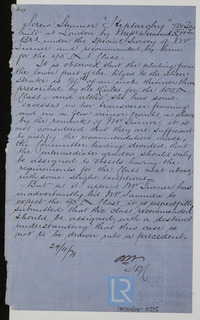 "Screw Steamer "Hipparchus"
built at London by Mess.rs Samuda
under the Special Survey of Mr
Turner and recommended by him
for the 90 A 1 Class.
It is observed that the plating from
the lower part of the bilges to the Sheer
Strake is 1/16 of an inch thinner than
prescribed by the Rules for the 100A
Class, and altho' She has some
excesses in her transverse framing
and in a few minor points, as shown
by the remarks of Mr Turner, it is
not considered that they are sufficient
to justify the recommendation made;
the Committee having decided that
the intermediate grades should only
be assigned to Vessels having the
requirements for the Class next above,
with some slight exceptions.
But as it appears Mr Turner has
inadvertently led Mr Samuda to
expect the 90 A Class, it is respectfully
submitted that the Class recommended
should be assigned, with a distinct
understanding that this case is
not to be drawn into a precedent.
29/11/71
LR